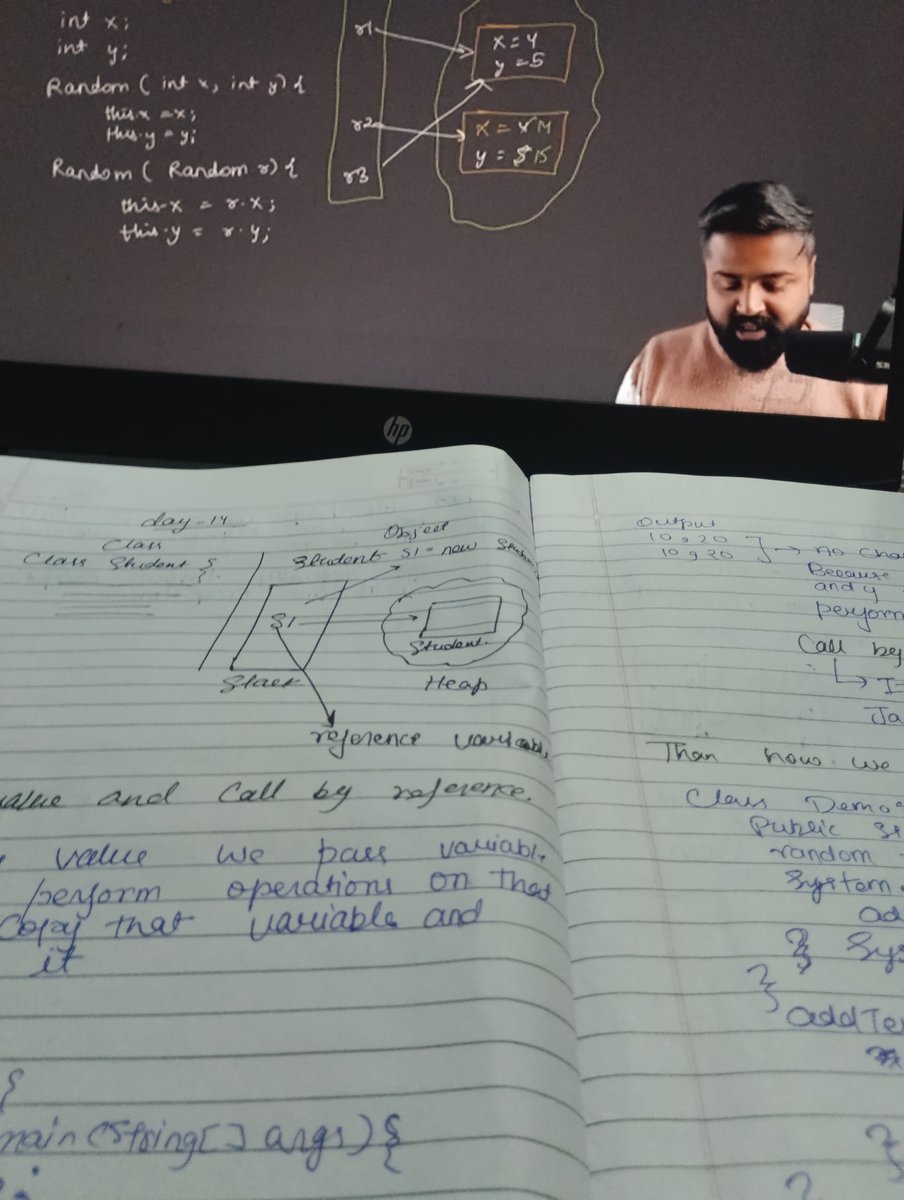 int x;
int y;
Random ( int x, int y) {
this.x = x;
this.y = y;
Random ( Random r) {
this.x = r.x;
this.y = r.y;
r1
r2
r3
x = 4
y = 5
x = 4 14
y = 5 15
hp
day-14
Class
Class Student {
Object
Student S1 = new
S1
Student
Stack
Heap
reference variable
value and Call by reference.
value we pass variable
perform operations on that
Copy that variable and
it
{
main(String[] args){
Output
10 g 20
10 g 20
Because
and y
perform
Call by
Than now we
Class Demo
Public
random
System.
ad
} Sys
}
addTe
}